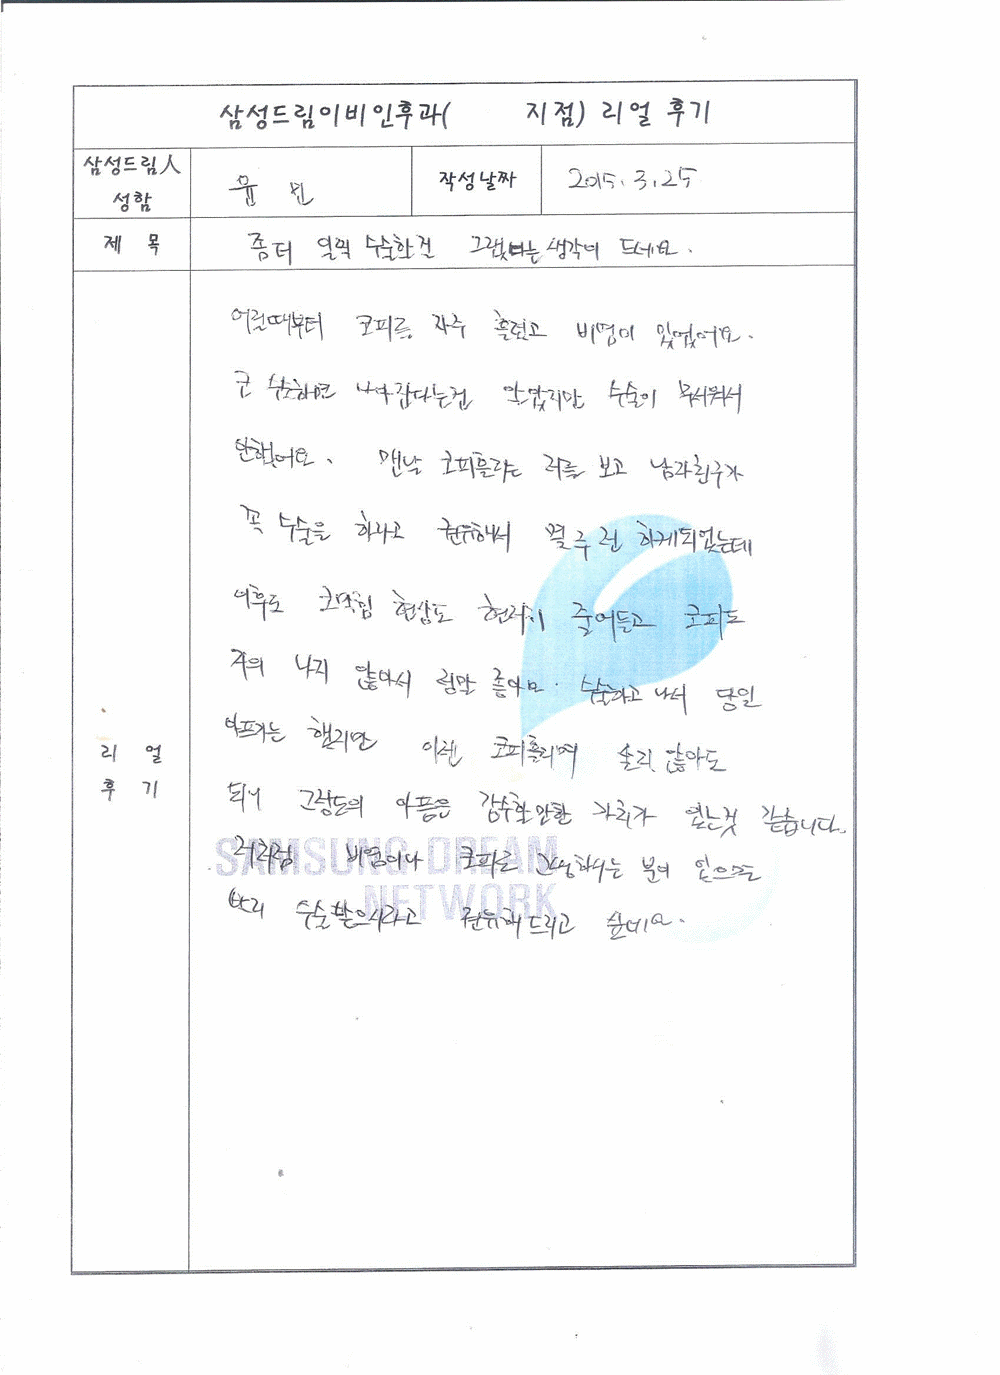 삼성드림이비인후과( 지점) 리얼 후기
삼성드림人 성함
윤 민
작성날짜
2015. 3. 25
제 목
좀더 일찍 수술할걸 그랬다는 생각이 드네요.
어릴때부터 코피를 자주 흘렸고 비염이 있었어요.
코 수술하면 나아진다는건 알았지만 수술이 무서워서
안했어요. 맨날 코피흘리는 저를 보고 남자친구가
꼭 수술을 하라고 권유해서 몇 주 전 하게되었는데
이후로 코막힘 현상도 현저히 줄어들고 코피도
거의 나지 않아서 정말 좋아요. 수술하고 나서 당일
아프기는 했지만 이젠 코피흘리며 살지 않아도
되니 그정도의 아픔은 감수할만한 가치가 있는것 같습니다.
저처럼 비염이나 코피로 고생하시는 분이 있으면
빨리 수술받으시라고 권유해 드리고 싶네요.
리 얼
후 기
SAMSUNG DREAM
NETWORK